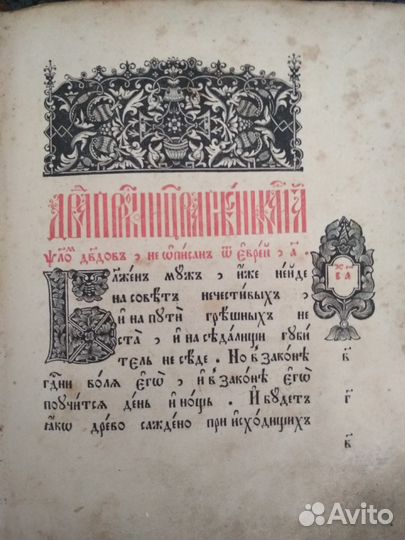 Ѱало́мъ дв҃довъ, не ѡ҆писанъ ѿ є҆врей, а҃.
Бл҃же́нъ мꙋжъ, и҆́же не и҆́де
на совѣ́тъ нечести́выхъ,
и҆ на пꙋтѝ грѣ́шныхъ не
ста̀, и҆ на сѣда́лищи гꙋби́
тель не сѣ́де. Но в зако́нѣ
гдⷭ҇ни во́лѧ є҆гѡ̀, и҆ в зако́нѣ є҆гѡ̀
поꙋчи́тсѧ де́нь и҆ но́щь. И҆ бꙋ́детъ
ꙗ҆́кѡ дре́во саждено̀ при и҆схо́дищихъ
в҃
г҃
в҃
Avito